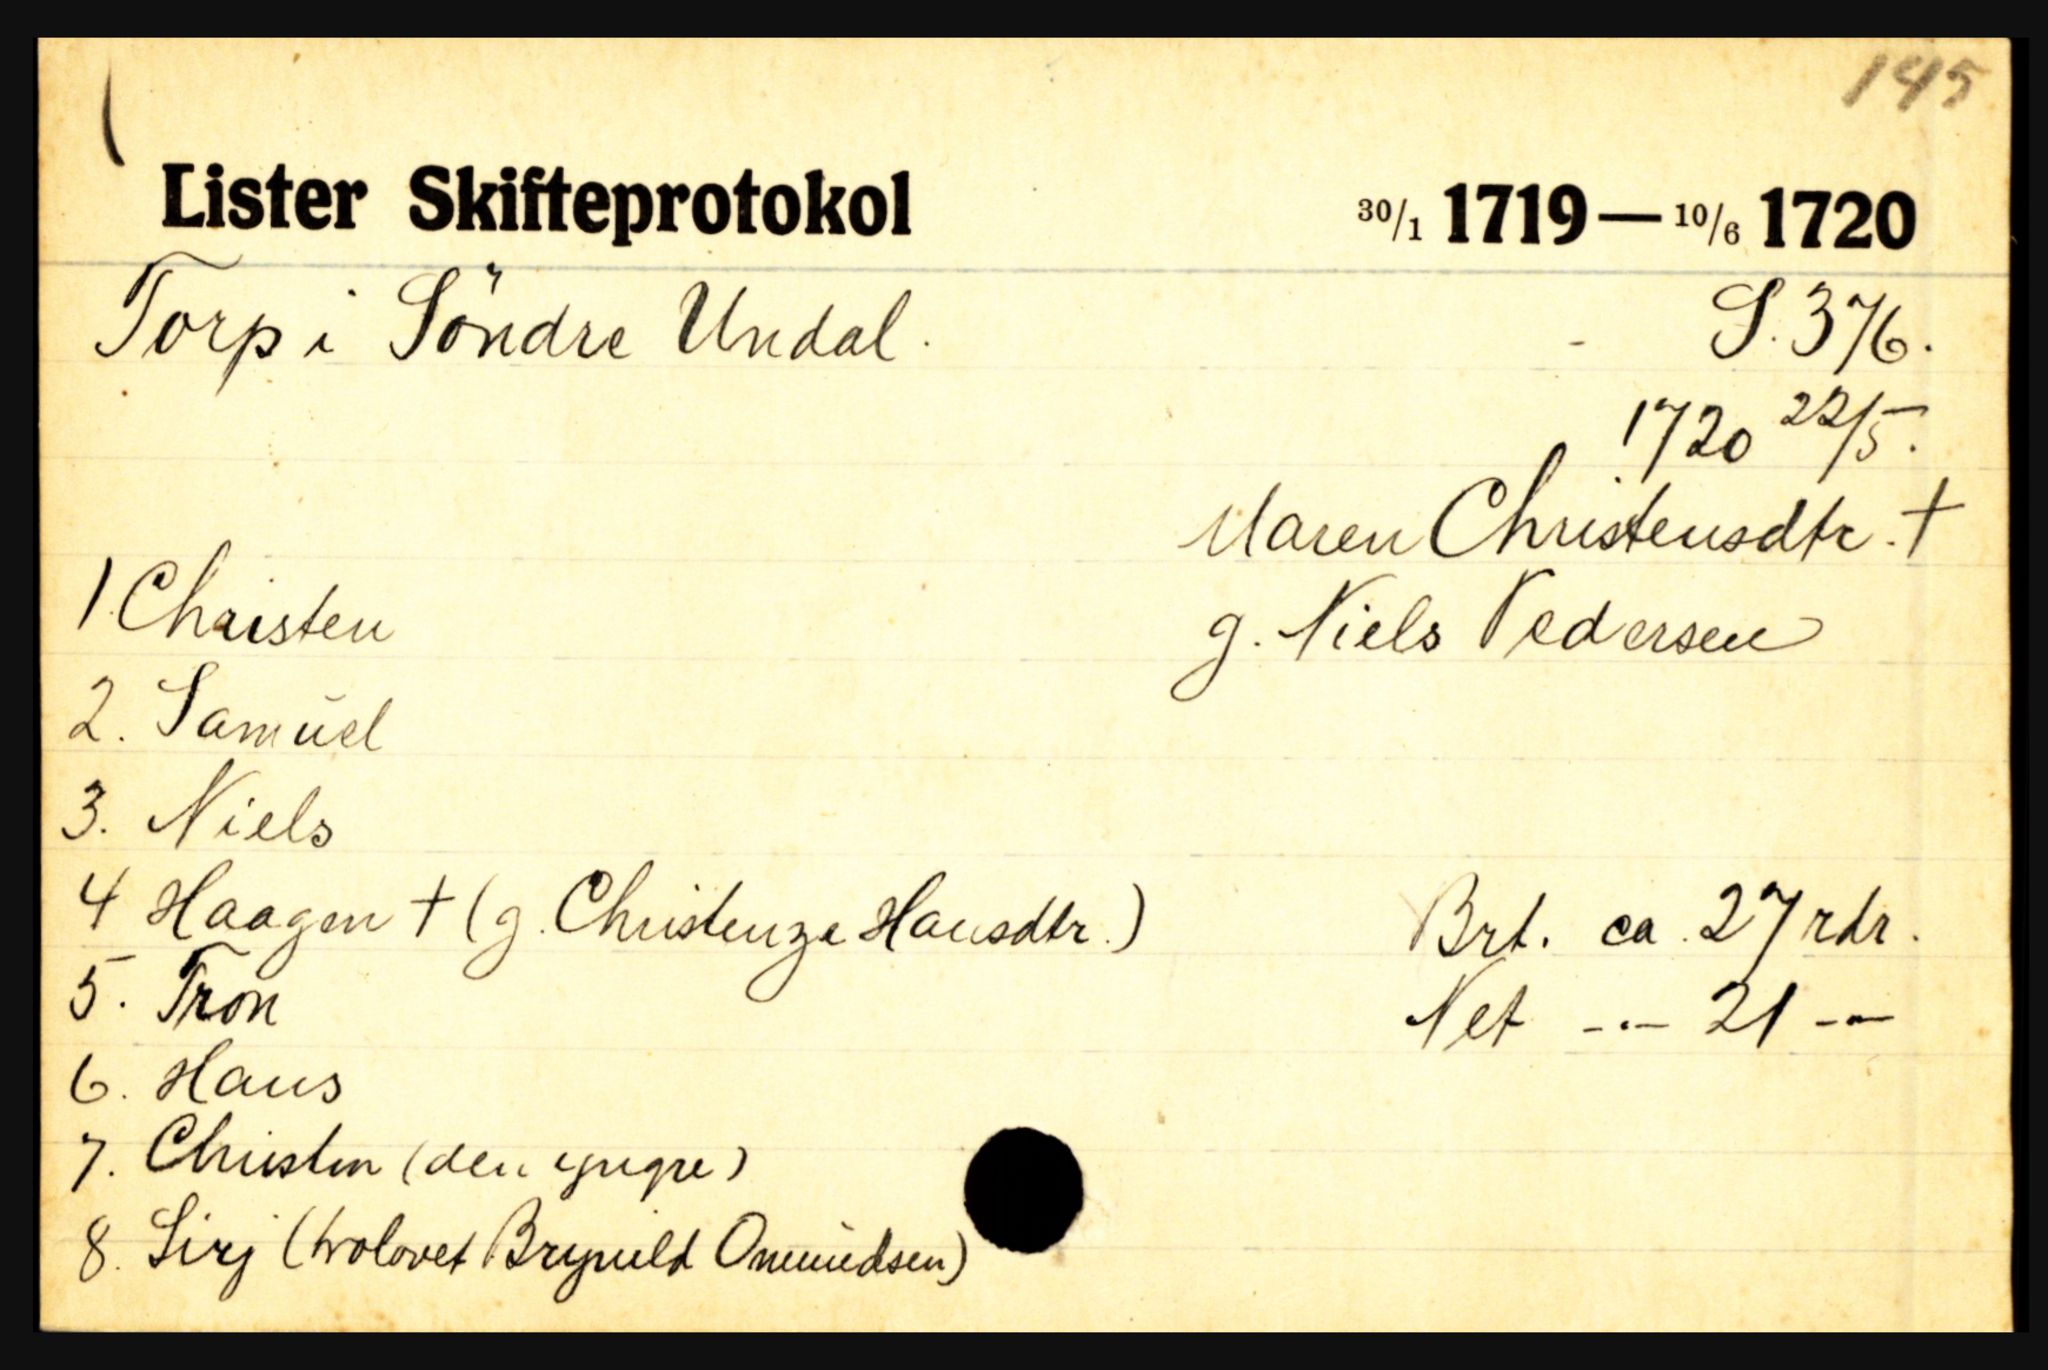 145
Lister Skifteprotokol 30/1 1719 — 10/6 1720
Torp i Söndre Undal. - S. 376.
1720 22/5.
Maren Christensdtr. †
1. Christen
g. Niels Pedersen
2. Samuel
3. Niels
4 Haagen † (g. Christenze Hansdtr.)
Brt. ca. 27 rdr.
5. Tron
Net -.- 21 -.-
6. Hans
7. Christen (den yngre)
8. Sirj (trolovet Brynild Onmudsen)